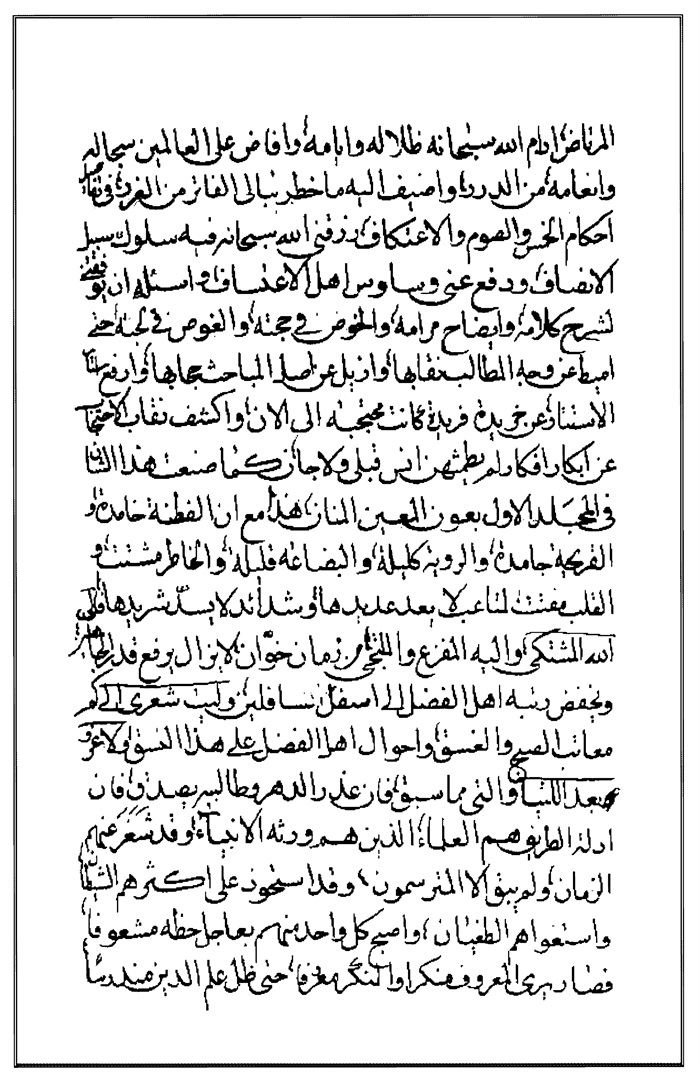 المرتاض ادام الله سبحانه ظلاله وايامه وافاض على العالمين سجاله
وانعامه من الدرر واضيف اليه ما خطر ببالى الفاتر من الغرر فى تفاصيل
احكام الخمس والصوم والاعتكاف رزقنى الله سبحانه فيه سلوك سبيل
الانصاف ودفع عنى وساوس اهل الاعتساف واسئله ان يوفقنى
لشرح كلامه وايضاح مرامه والخوض فى حجته والغوص فى لجته حتى
اميط عن وجه المطالب نقابها وازيل عن اصل المباحث حجابها وارفع
الاستتار عن خريدة فريدة كانت محتجبة الى الان واكشف نقاب الاحتجاب
عن ابكار افكار لم يطمثهن انس قبلى ولا جان كما صنعت هذا الشان
فى المجلد الاول بعون المعين المنان هذا مع ان الفطنة خامدة و
القريحة جامدة والروية كليلة والبضاعة قليلة والخاطر مشتت و
القلب مفتت لمتاعب لا يعد عديدها وشدائد لا يسد شريدها فالى
الله المشتكى واليه المفزع والملتجى من زمان خوان لا يزال يرفع قدر الجاهلين
ويخفض رتبة اهل الفضل الى اسفل السافلين وليت شعرى الى كم
معاتب الصبح والغسق واحوال اهل الفضل على هذا النسق ولا غرو
بعد اللتيا والتى مما سبق فان غدر الدهر وطالبيه بصدق فان
ادلة الطريق هم العلماء الذين هم ورثة الانبياء وقد شغر عنهم
الزمان ولم يبق الا المترسمون وقد استحوذ على اكثرهم الشيطان
واستغواهم الطغيان واصبح كل واحد منهم بعاجل حظه مشعوفا
فصار يرى المعروف منكرا والمنكر معروفا حتى ظل علم الدين مندرسا